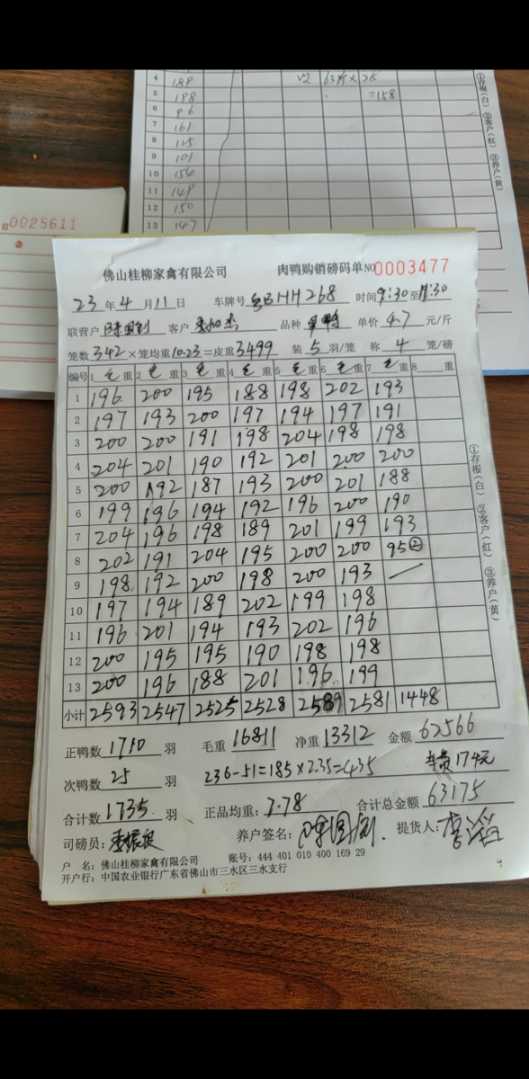 4 189
5 198 =158
6 96
7 161
8 125
9 101
10 156
11 149
12 150
13 147
0025611
佛山桂柳家禽有限公司 肉鸭购销磅码单 NO 0003477
23 年 4 月 11 日 车牌号 HH268 时间 9:30 至 11:30
联营户 客户 品种 单价 4.7 元/斤
笼数 342 × 笼均重 10.23 = 皮重 3499 装 5 羽/笼 称 4 笼/磅
编号 1 毛 重 2 毛 重 3 毛 重 4 毛 重 5 毛 重 6 毛 重 7 毛 重 8 重
1 196 200 195 188 198 202 193
2 197 193 200 197 194 197 191
3 200 200 191 198 204 198 198
4 204 201 190 192 201 200 200
5 200 192 187 193 200 201 188
6 199 196 194 192 196 200 190
7 204 196 198 189 201 199 193
8 202 191 204 195 200 200 95②
9 198 192 200 198 200 193 —
10 197 194 189 202 199 198
11 196 201 194 193 202 196
12 200 195 195 190 198 198
13 200 196 188 201 196 199
小计 2593 2547 2525 2528 2589 2581 1448
①存根(白) ②客户(红) ③养户(黄)
正鸭数 1710 羽 毛重 16811 净重 13312 金额 62566
次鸭数 25 羽 236-51=185×2.35=435 174元
合计数 1735 羽 正品均重: 7.78 合计总金额 63175
司磅员: 养户签名: 提货人:
户 名: 佛山桂柳家禽有限公司 账号: 444 401 010 400 169 29
开户行: 中国农业银行广东省佛山市三水区三水支行